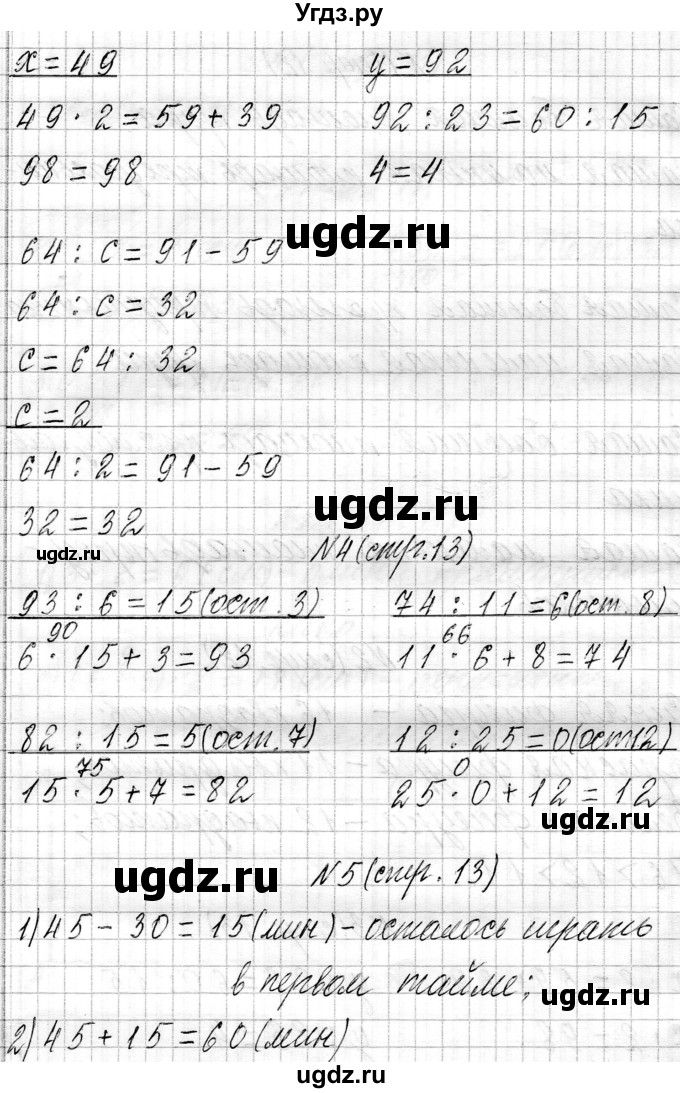 Угдз.ру
x = 49 y = 92
49 · 2 = 59 + 39 92 : 23 = 60 : 15
98 = 98 4 = 4
ugdz.ru
64 : c = 91 - 59
64 : c = 32
c = 64 : 32
c = 2
64 : 2 = 91 - 59
ugdz.ru
32 = 32
ugdz.ru
N4 (стр. 13)
93 : 6 = 15 (ост. 3) 74 : 11 = 6 (ост. 8)
90 66
6 · 15 + 3 = 93 11 · 6 + 8 = 74
82 : 15 = 5 (ост. 7) 12 : 25 = 0 (ост 12)
75 0
15 · 5 + 7 = 82 25 · 0 + 12 = 12
ugdz.ru
ugdz.ru
N5 (стр. 13)
1) 45 - 30 = 15 (мин) - осталось играть
в первом тайме;
ugdz.ru
2) 45 + 15 = 60 (мин)
ugdz.ru